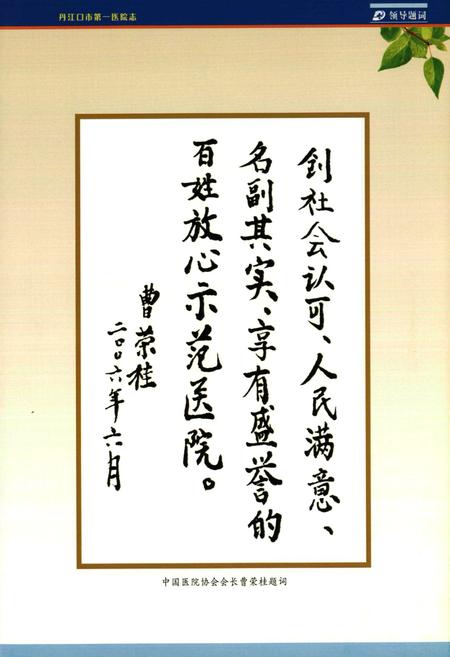 丹江口市第一医院志
领导题词
创社会认可、人民满意、
名副其实、享有盛誉的
百姓放心示范医院。
曹荣桂
二〇〇六年六月
中国医院协会会长曹荣桂题词